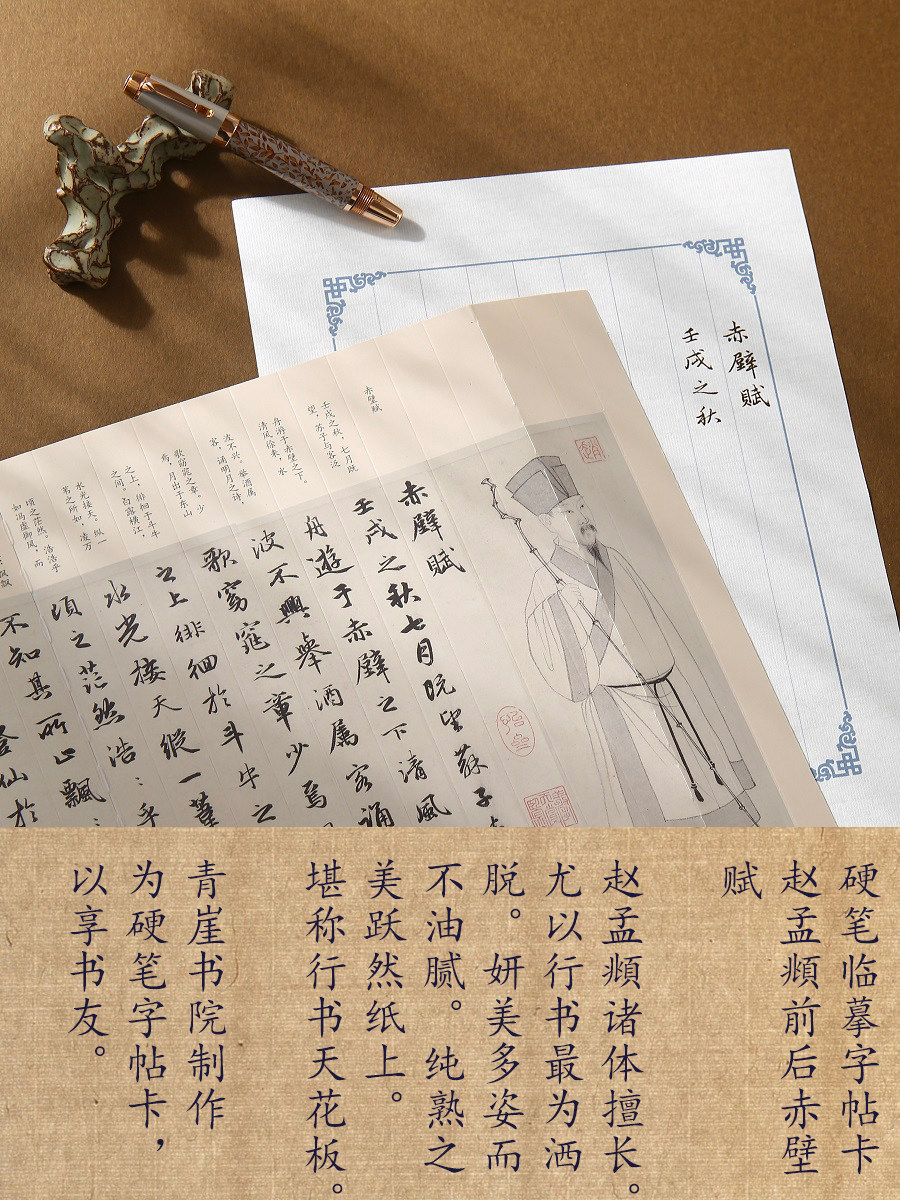 赤壁賦
壬戌之秋
赤壁赋
壬戌之秋，七月既
望，苏子与客泛
舟游于赤壁之下。
清风徐来，水
波不兴。举酒属
客，诵明月之诗，
歌窈窕之章。少
焉，月出于东山
之上，徘徊于斗牛
之间。白露横江，
水光接天。纵一
苇之所如，凌万
顷之茫然。浩浩乎
如冯虚御风，而
赤壁賦
壬戌之秋七月既望蘇子
舟遊于赤壁之下清風
波不興舉酒屬客誦
歌窈窕之章少焉
之上徘徊於斗牛之
水光接天縱一葦
頃之茫然浩:乎
不知其所止飄:
登仙於
硬笔临摹字帖卡
赵孟頫前后赤壁
赋
赵孟頫诸体擅长。
尤以行书最为洒
脱。妍美多姿而
不油腻。纯熟之
美跃然纸上。
堪称行书天花板。
青崖书院制作
为硬笔字帖卡，
以享书友。